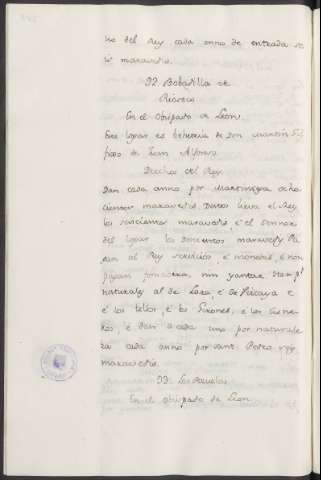 no del Rey cada anno de entrada
maravedis.
92. Bobadilla de
Rioseco
En el Obispado de Leon.
Este logar es behetria de Don Martin
fijo de Juan Alfonso
Derechos del Rey
Dan cada anno por martiniega ocho
cientos maravedis Destos lieva el Rey
los seiscientos maravedis, é el sennor
del logar los doscientos maravedis Pa
gan al Rey servicios, é monedas, é non
pagan fonsadera, nin yantar
naturales al de Lara, é de Vizcaya é
é los tellos, é los Girones, é los Cisne
ros, é dan a cada uno por naturale
za cada anno por sant Pedro
maravedis.
93.
En el obispado de Leon